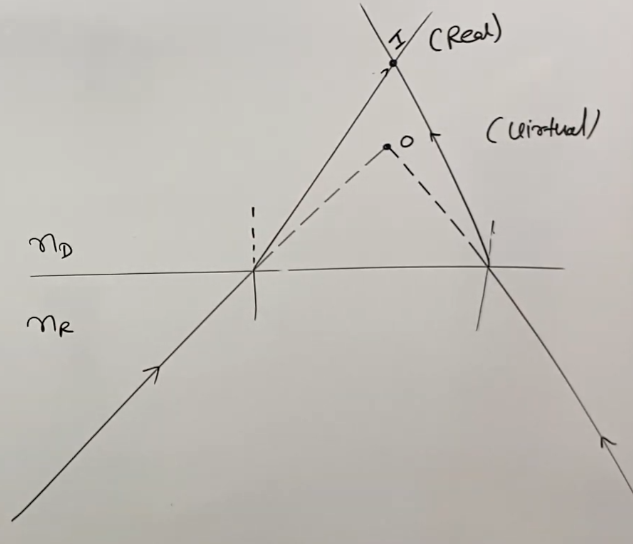 I (Real)
(Virtual)
O
n_D
n_R